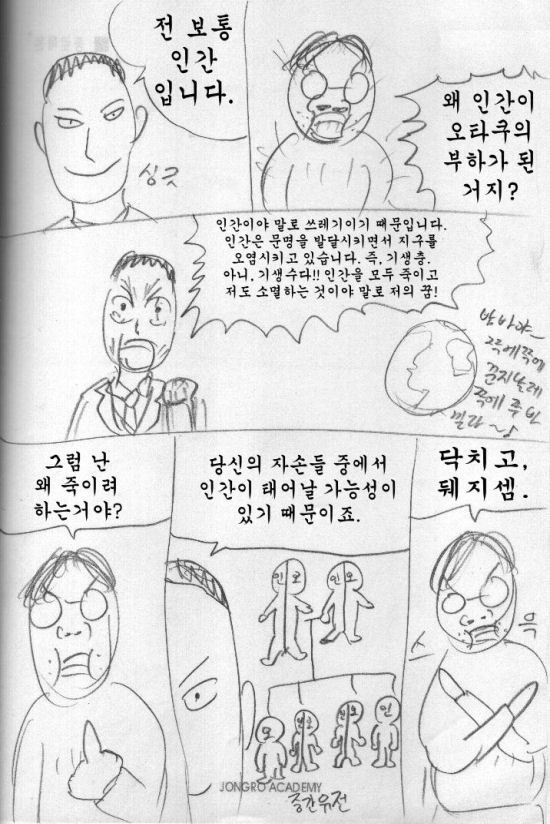 전 보통
인간
입니다.
싱긋
왜 인간이
오타쿠의
부하가 된
거지?
인간이야 말로 쓰레기이기 때문입니다.
인간은 문명을 발달시키면서 지구를
오염시키고 있습니다. 즉, 기생충.
아니, 기생수다!! 인간을 모두 죽이고
저도 소멸하는 것이야 말로 저의 꿈!
그럼 난
왜 죽이려
하는거야?
당신의 자손들 중에서
인간이 태어날 가능성이
있기 때문이죠.
인 오
인 오
오
인 오
인 오
인
중간유전
닥치고,
뒈지셈.
스
윽
JONGRO ACADEMY